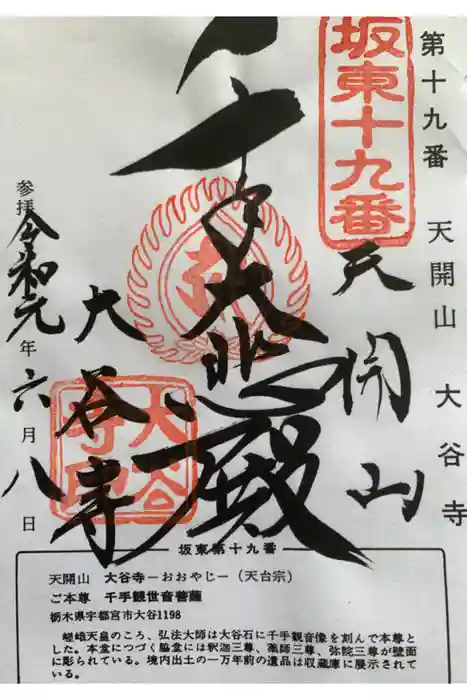 第十九番 天開山 大谷寺
坂東十九番
天開山
千手大悲殿
大谷寺
大谷寺印
参拝 令和元年六月八日
坂東第十九番
天開山 大谷寺ーおおやじー（天台宗）
ご本尊 千手観世音菩薩
栃木県宇都宮市大谷1198
嵯峨天皇のころ、弘法大師は大谷石に千手観音像を刻んで本尊と
した。本堂につづく脇堂には釈迦三尊、薬師三尊、弥陀三尊が壁面
に彫られている。境内出土の一万年前の遺品は収蔵庫に展示されて
いる。